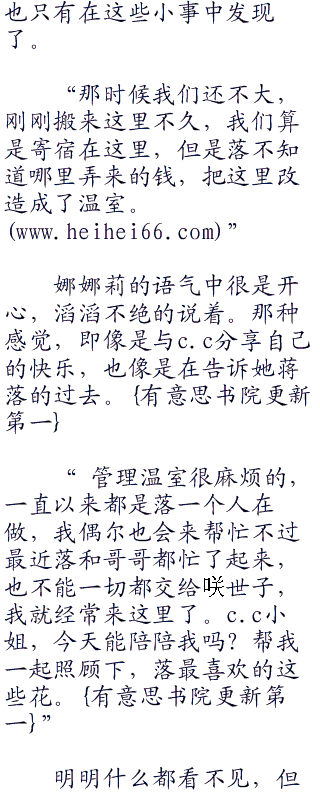 也只有在这些小事中发现
了。
“那时候我们还不大，
刚刚搬来这里不久，我们算
是寄宿在这里，但是落不知
道哪里弄来的钱，把这里改
造成了温室。
(www.heihei66.com)”
娜娜莉的语气中很是开
心，滔滔不绝的说着。那种
感觉，即像是与c.c分享自己
的快乐，也像是在告诉她蒋
落的过去。{有意思书院更新
第一}
“ 管理温室很麻烦的，
一直以来都是落一个人在
做，我偶尔也会来帮忙不过
最近落和哥哥都忙了起来，
也不能一切都交给咲世子，
我就经常来这里了。c.c小
姐，今天能陪陪我吗？帮我
一起照顾下，落最喜欢的这
些花。{有意思书院更新第
一}”
明明什么都看不见，但